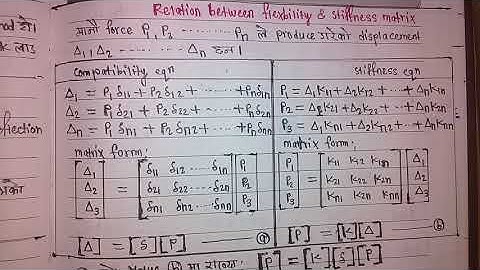 Relation between flexibility & stiffness matrix
मानौ force P₁, P₂ ········ Pn ले produce गरेको displacement
Δ₁, Δ₂ ········ Δn हुन।
compatibility eqn
Δ₁ = P₁δ₁₁ + P₂δ₁₂ + ······ + Pnδ₁n
Δ₂ = P₁δ₂₁ + P₂δ₂₂ + ······ + Pnδ₂n
Δn = P₁δn₁ + P₂δn₂ + ······ + Pnδnn
matrix form:
[Δ₁ Δ₂ Δ₃] = [δ₁₁ δ₁₂ ····· δ₁n
δ₂₁ δ₂₂ ····· δ₂n
δn₁ δn₂ ····· δnn] [P₁ P₂ P₃]
[Δ] = [δ] [P] (a)
stiffness eqn
P₁ = Δ₁k₁₁ + Δ₂k₁₂ + ··· + Δnk₁n
P₂ = Δ₁k₂₁ + Δ₂k₂₂ + ··· + Δnk₂n
P₃ = Δ₁kn₁ + Δ₂kn₂ + ··· + Δnknn
matrix form:
[P₁ P₂ P₃] = [k₁₁ k₁₂ k₁n
k₂₁ k₂₂ k₂n
kn₁ kn₂ knn] [Δ₁ Δ₂ Δ₃]
[P] = [k] [Δ] (b)
[P] = [k] [δ] [P]